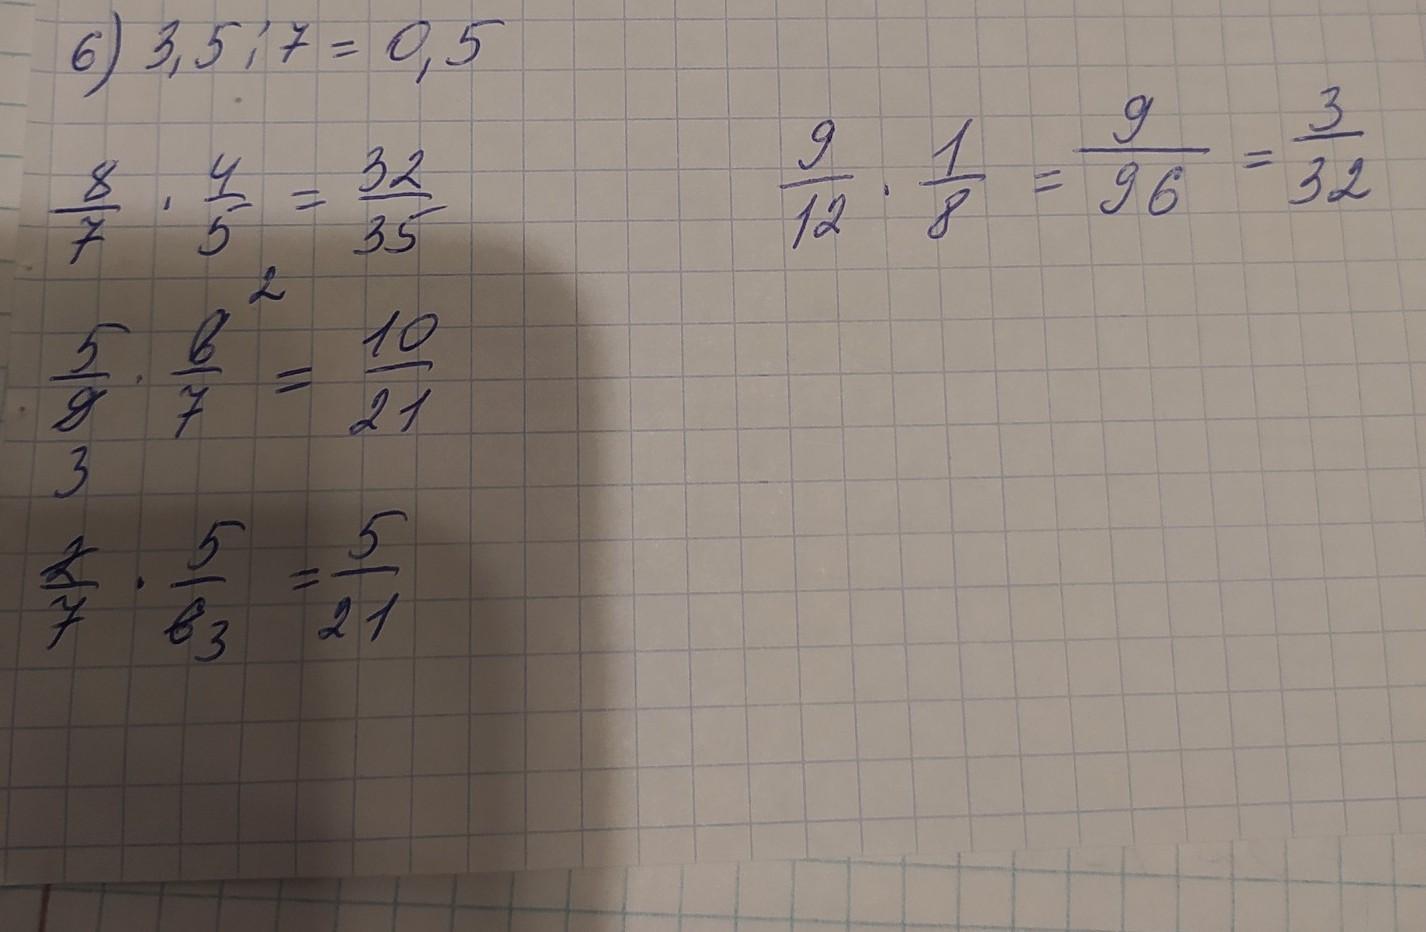 6) 3,5 : 7 = 0,5
8/7 · 4/5 = 32/35
5/9 3 · 6/7 2 = 10/21
2/7 · 5/6 3 = 5/21
9/12 · 1/8 = 9/96 = 3/32